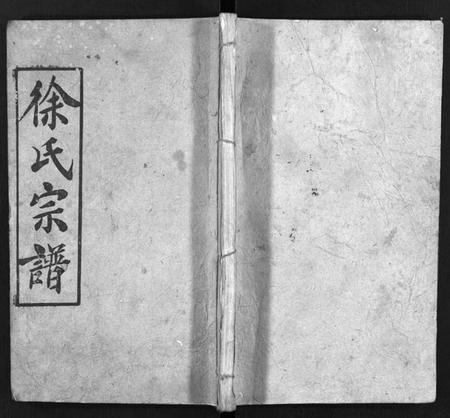 徐氏宗譜